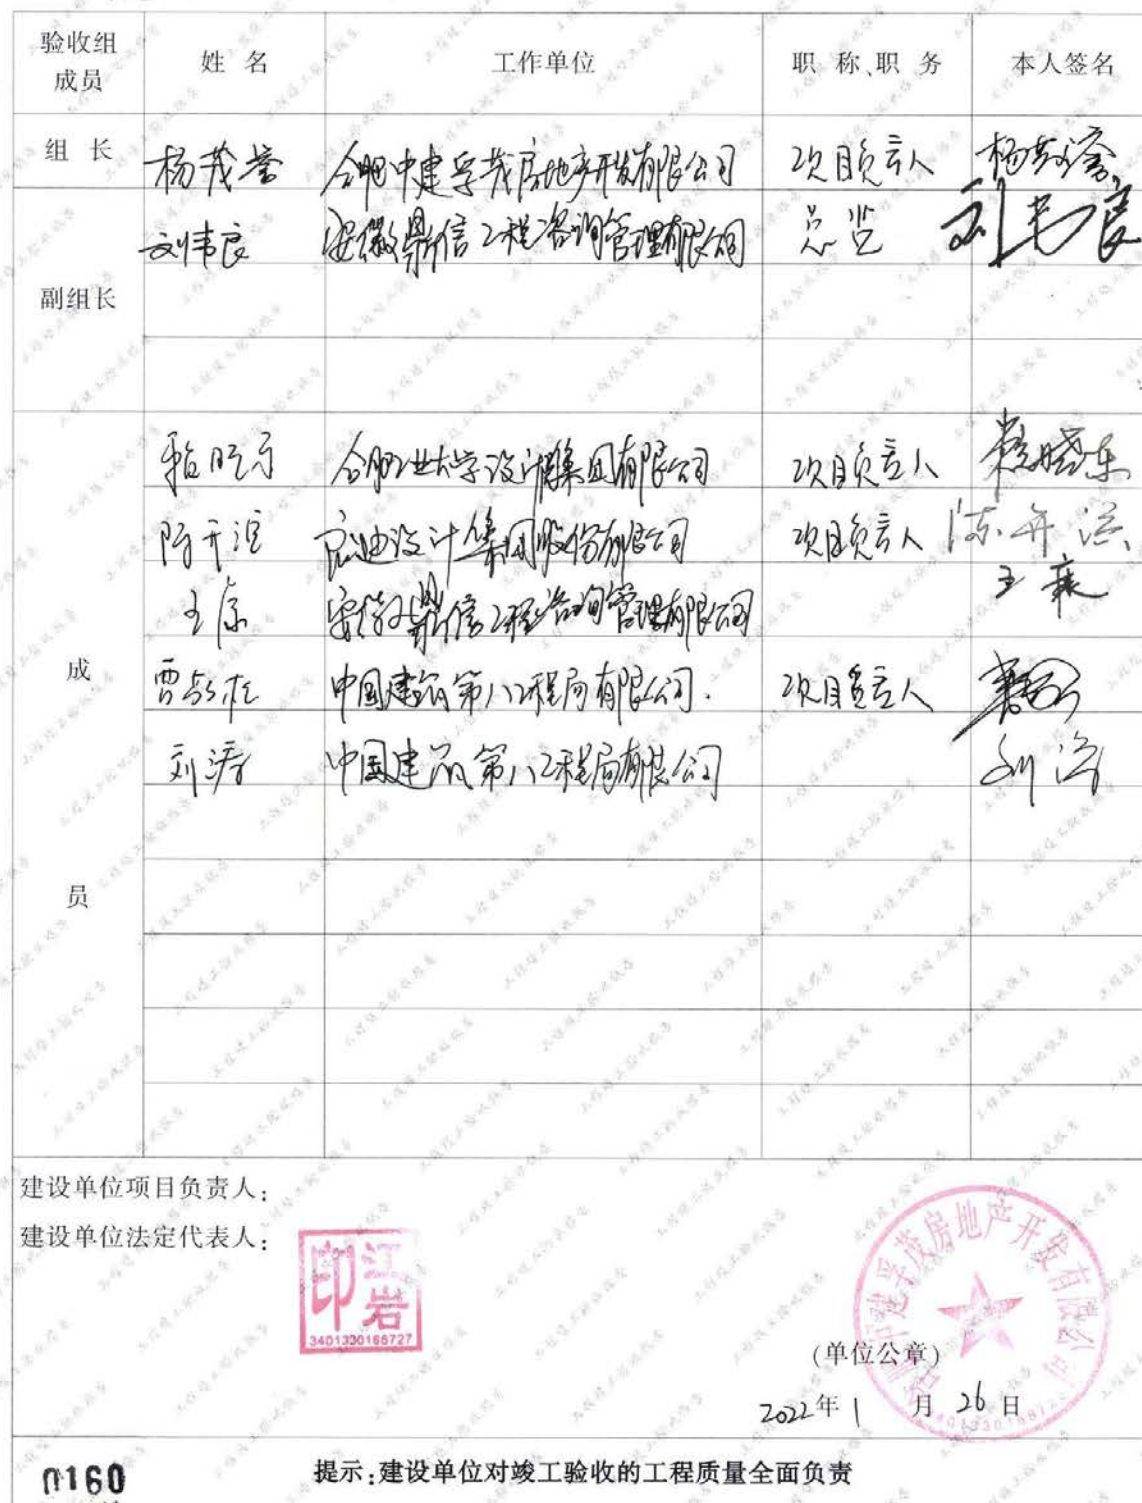 验收组成员 姓 名 工作单位 职 称、职 务 本人签名
组 长 杨茂誉 合肥中建孚茂房地产开发有限公司 项目负责人 杨茂誉
刘韦良 安徽鼎信工程咨询管理有限公司 总监
副组长
合肥工业大学设计院集团有限公司 项目负责人
设计集团股份有限公司 项目负责人
王康 安徽鼎信工程咨询管理有限公司 王康
成 中国建筑第八工程局有限公司. 项目负责人
刘涛 中国建筑第八工程局有限公司 刘涛
员
建设单位项目负责人:
建设单位法定代表人:
江岩印
3401330166727
合肥中建孚茂房地产开发有限公司
(单位公章)
2022年1月26日
0160 提示:建设单位对竣工验收的工程质量全面负责